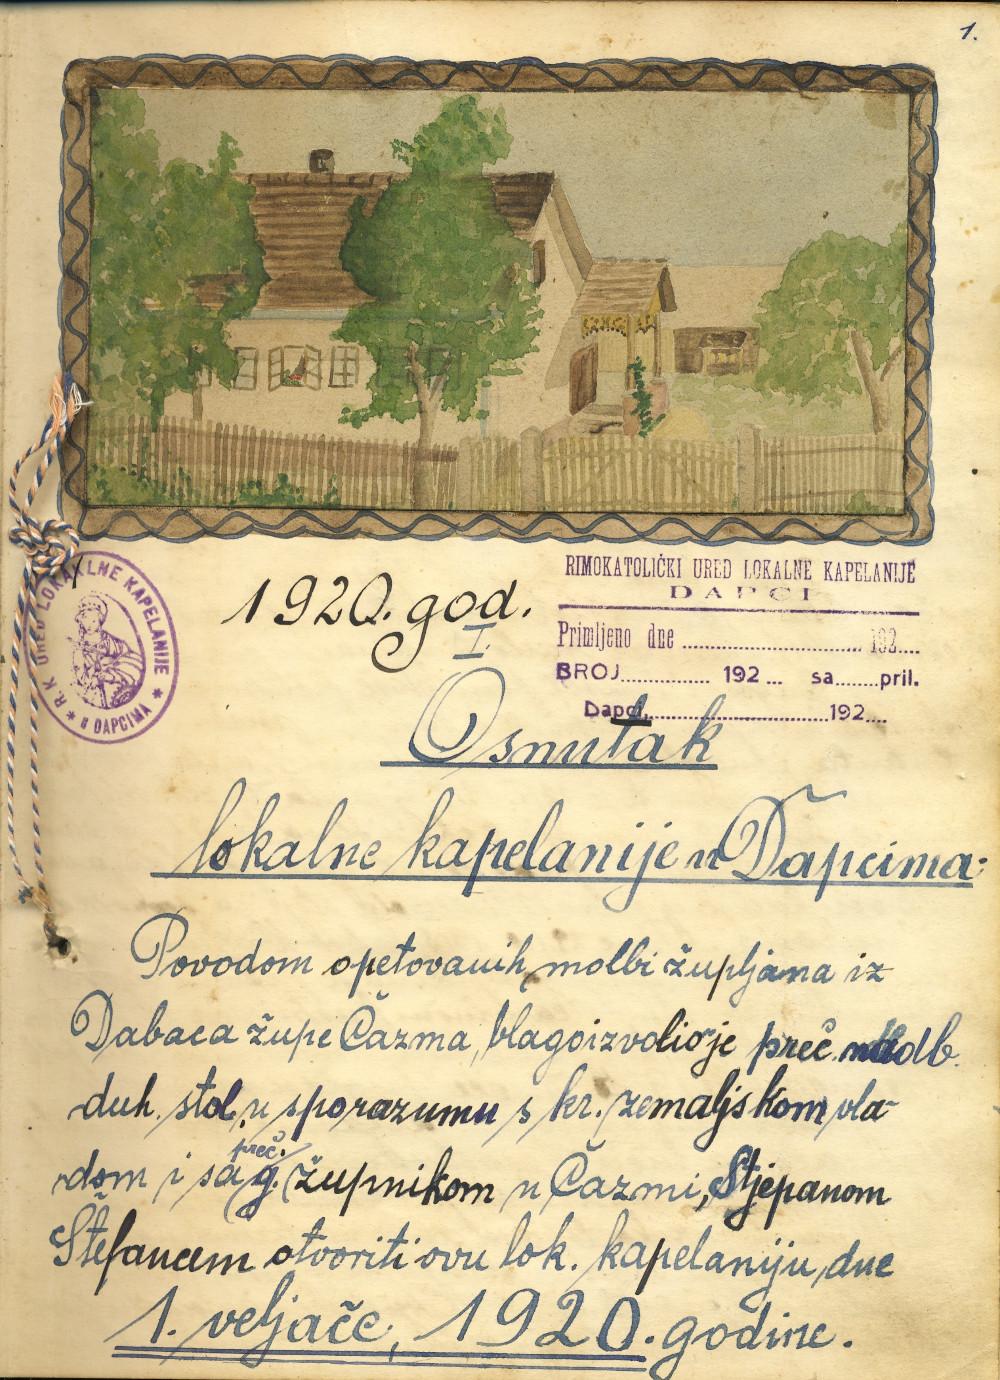 1.
1920. god.
I.
R. K. URED LOKALNE KAPELANIJE
* u DAPCIMA *
RIMOKATOLIČKI URED LOKALNE KAPELANIJE
DAPCI
Primljeno dne ........................ 192....
BROJ............ 192 ... sa.......pril.
Dapci,........................192....
Osnutak
lokalne kapelanije u Dapcima.
Povodom opetovanih molbi župljana iz
Dabaca župe Čazma, blagoizvolio je preč. nadb.
duh. stol, u sporazumu s kr. zemaljskom vla-
dom i sa preč. g. župnikom u Čazmi, Stjepanom
Štefancem otvoriti ovu lok. kapelaniju, dne
1. veljače, 1920. godine.